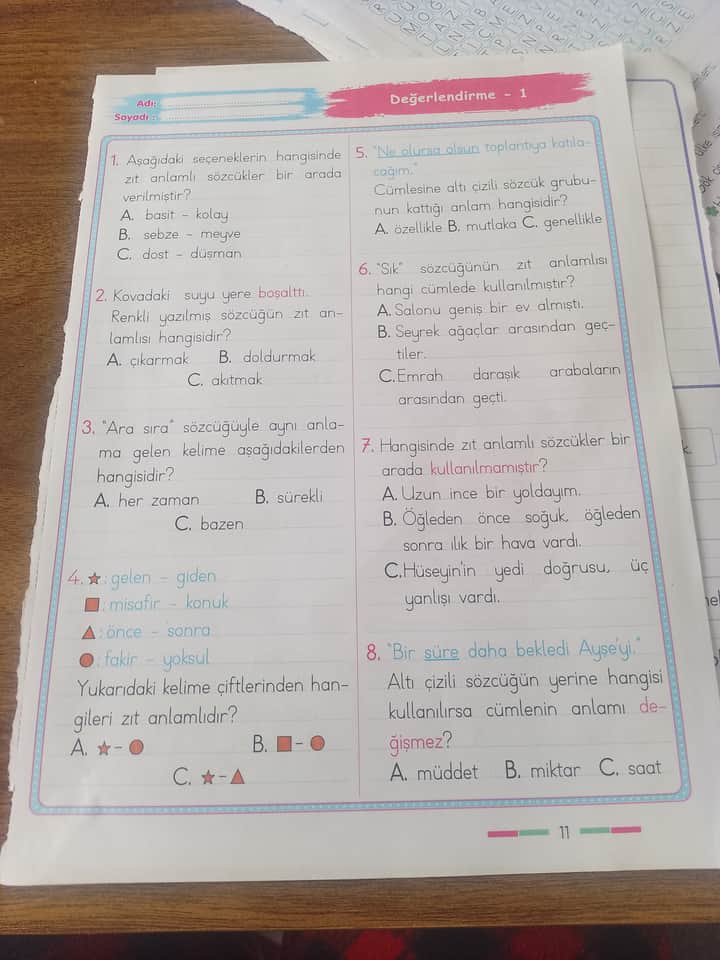 Adı:
Soyadı:
Değerlendirme - 1
1. Aşağıdaki seçeneklerin hangisinde
zıt anlamlı sözcükler bir arada
verilmiştir?
A. basit - kolay
B. sebze - meyve
C. dost - düşman
2. Kovadaki suyu yere boşalttı.
Renkli yazılmış sözcüğün zıt an-
lamlısı hangisidir?
A. çıkarmak B. doldurmak
C. akıtmak
3. "Ara sıra" sözcüğüyle aynı anla-
ma gelen kelime aşağıdakilerden
hangisidir?
A. her zaman B. sürekli
C. bazen
4. ★: gelen - giden
■: misafir - konuk
▲: önce - sonra
●: fakir - yoksul
Yukarıdaki kelime çiftlerinden han-
gileri zıt anlamlıdır?
A. ★-● B. ■-●
C. ★-▲
5. "Ne olursa olsun toplantıya katıla-
cağım."
Cümlesine altı çizili sözcük grubu-
nun kattığı anlam hangisidir?
A. özellikle B. mutlaka C. genellikle
6. "Sık" sözcüğünün zıt anlamlısı
hangi cümlede kullanılmıştır?
A. Salonu geniş bir ev almıştı.
B. Seyrek ağaçlar arasından geç-
tiler.
C. Emrah daraşık arabaların
arasından geçti.
7. Hangisinde zıt anlamlı sözcükler bir
arada kullanılmamıştır?
A. Uzun ince bir yoldayım.
B. Öğleden önce soğuk, öğleden
sonra ılık bir hava vardı.
C. Hüseyin'in yedi doğrusu, üç
yanlışı vardı.
8. "Bir süre daha bekledi Ayşe'yi."
Altı çizili sözcüğün yerine hangisi
kullanılırsa cümlenin anlamı de-
ğişmez?
A. müddet B. miktar C. saat
11